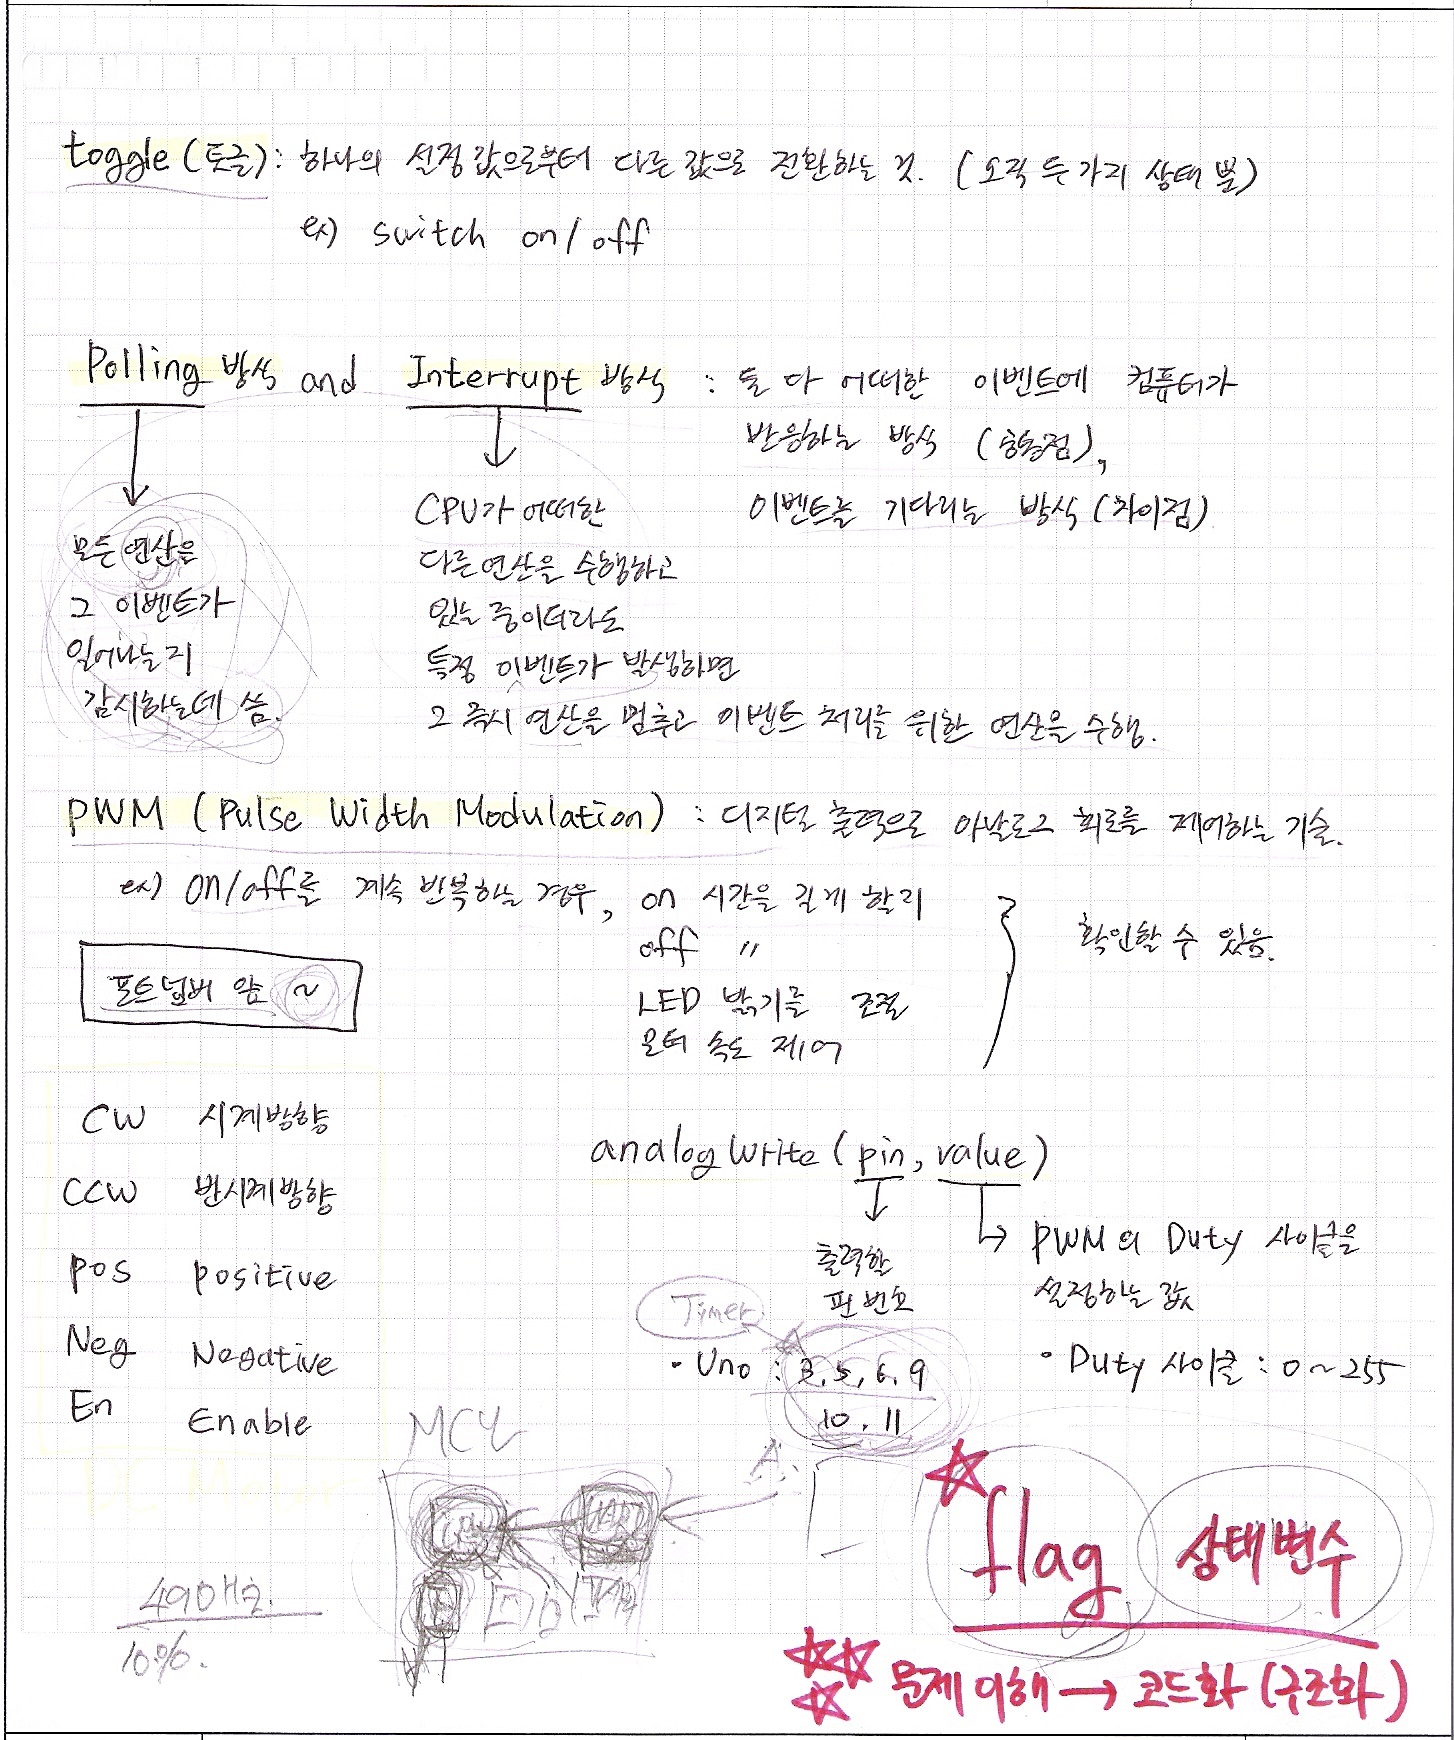 toggle (토글) : 하나의 설정 값으로부터 다른 값으로 전환하는 것. (오직 두가지 상태 뿐)
ex) switch on / off
Polling 방식 and Interrupt 방식 : 둘 다 어떠한 이벤트에 컴퓨터가
반응하는 방식 (공통점),
이벤트를 기다리는 방식 (차이점)
모든 연산을
그 이벤트가
일어나는지
감시하는데 씀.
CPU가 어떠한
다른연산을 수행하고
있는 중이더라도
특정 이벤트가 발생하면
그 즉시 연산을 멈추고 이벤트 처리를 위한 연산을 수행.
PWM (Pulse Width Modulation) : 디지털 출력으로 아날로그 회로를 제어하는 기술.
ex) on/off를 계속 반복하는 경우, on 시간을 길게 할지
off 〃
LED 밝기를 조절
모터 속도 제어
확인할 수 있음.
포트넘버 앞 ~
CW 시계방향
CCW 반시계방향
pos positive
Neg Negative
En Enable
analogWrite (pin, value)
출력할
핀 번호
PWM의 Duty 사이클을
설정하는 값
Timer
• Uno : 3, 5, 6, 9
10, 11
• Duty 사이클 : 0 ~ 255
MCU
A.
490Hz
10%.
flag 상태변수
문제 이해 → 코드화 (구조화)